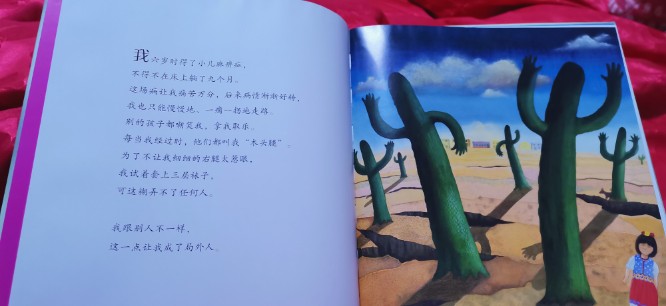 我六岁时得了小儿麻痹症，
不得不在床上躺了九个月。
这场病让我痛苦万分，后来病情渐渐好转，
我也只能慢慢地、一瘸一拐地走路。
别的孩子都嘲笑我，拿我取乐。
每当我经过时，他们都叫我“木头腿”。
为了不让我细细的右腿太惹眼，
我试着套上三层袜子，
可这糊弄不了任何人。
我跟别人不一样，
这一点让我成了局外人。